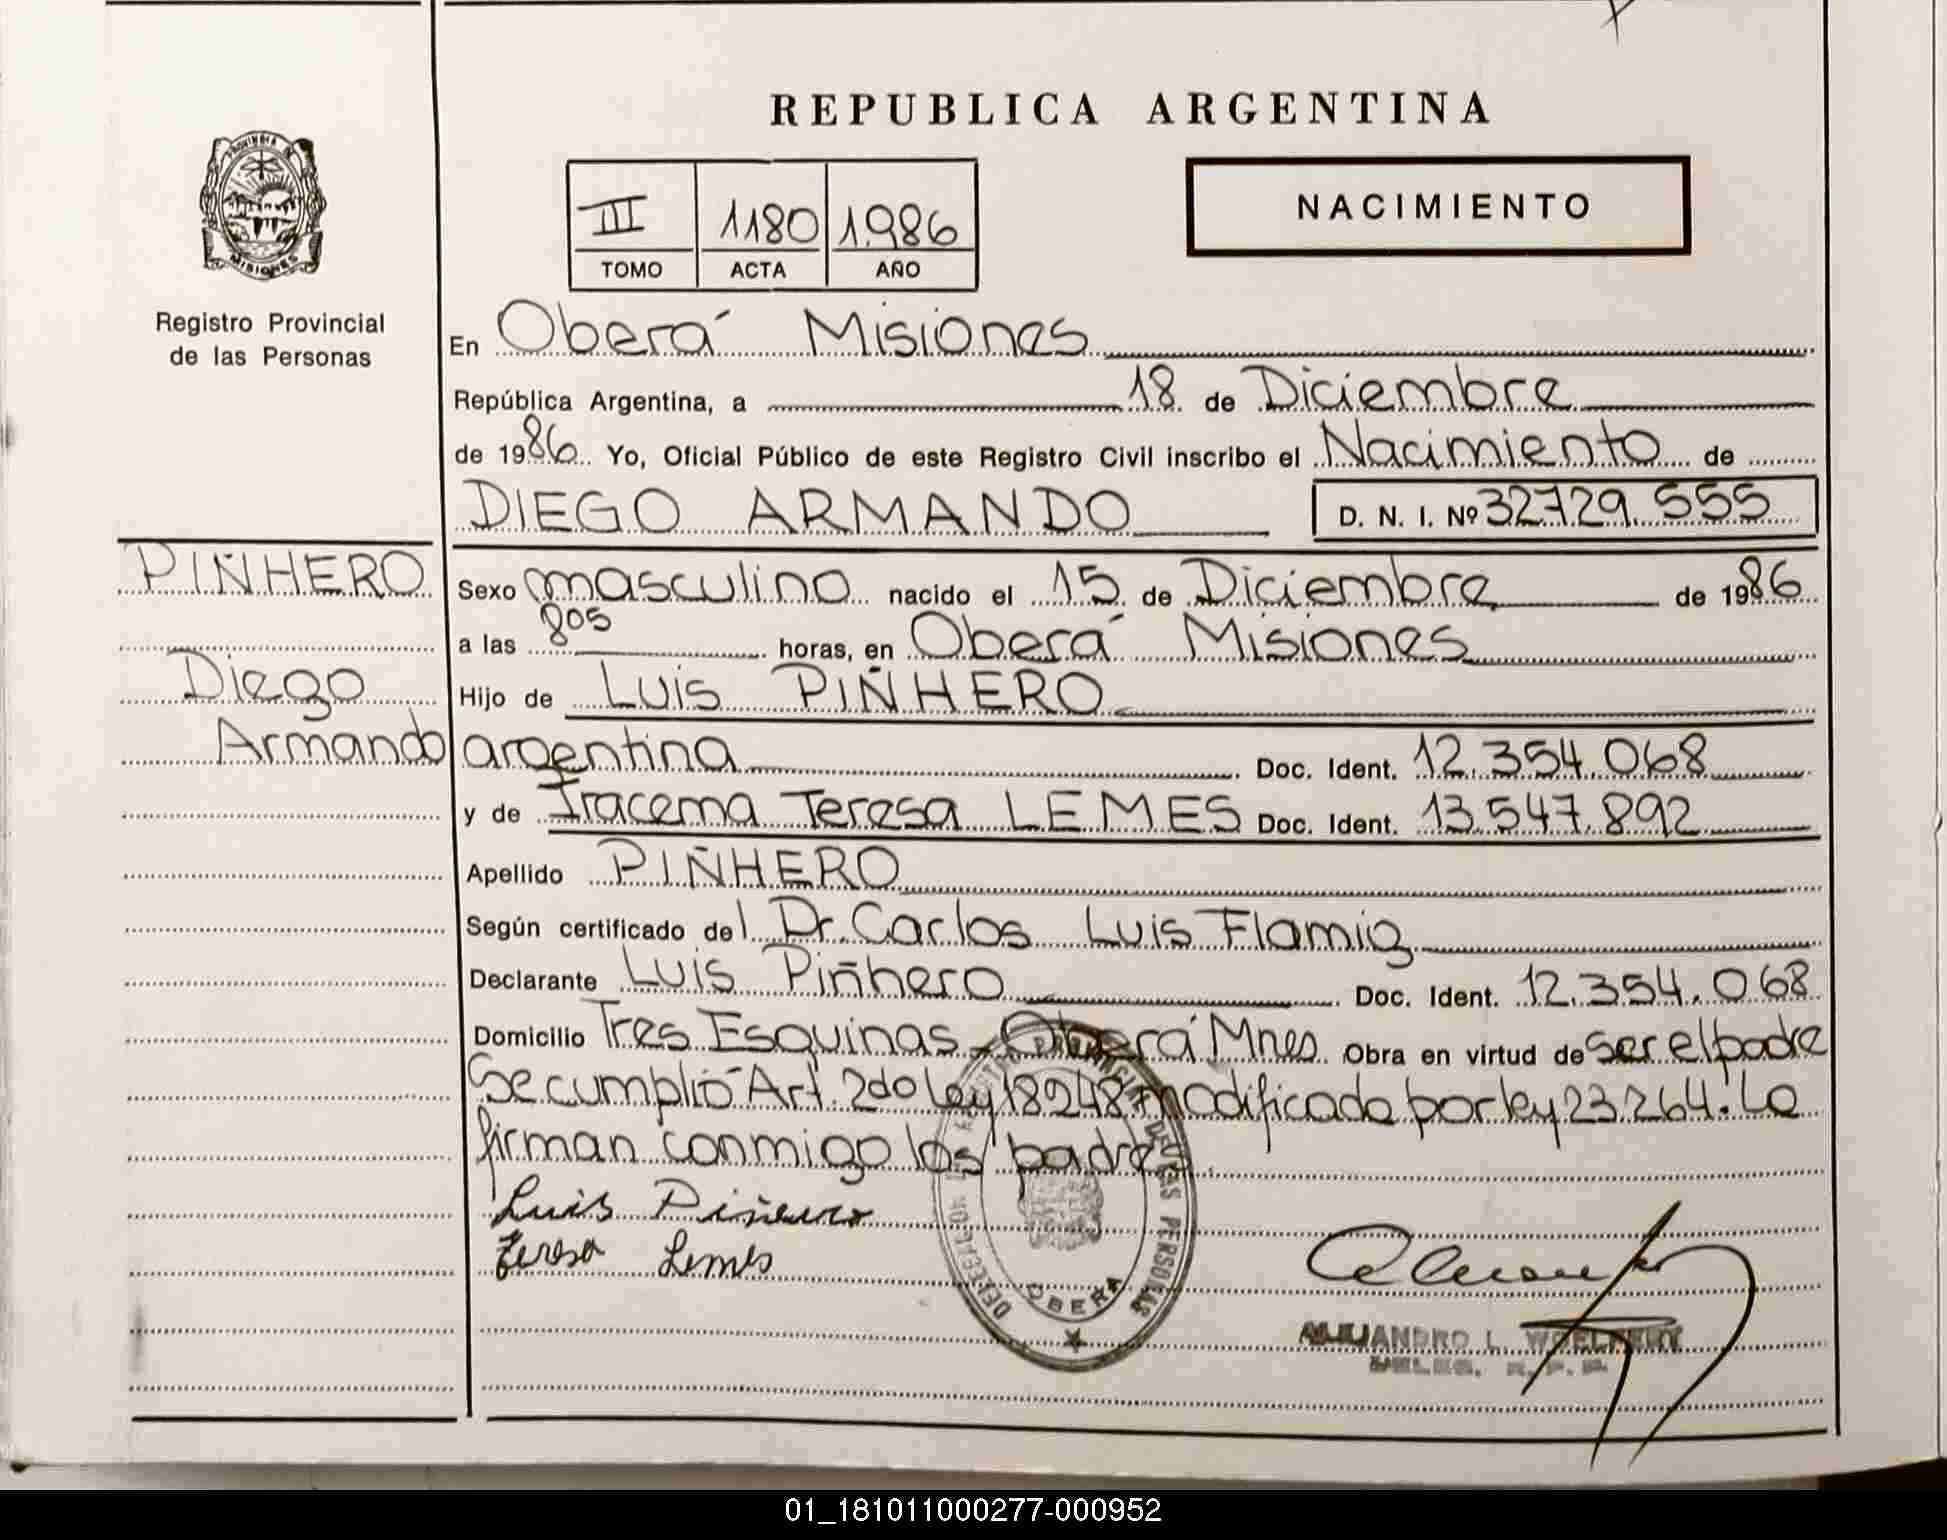 REPUBLICA ARGENTINA
PROVINCIA DE
MISIONES
Registro Provincial
de las Personas
III 1180 1.986
TOMO ACTA AÑO
NACIMIENTO
En Oberá Misiones
República Argentina, a 18 de Diciembre
de 1986 Yo, Oficial Público de este Registro Civil inscribo el Nacimiento de
DIEGO ARMANDO D. N. I. Nº 32729.555
PIÑHERO
Diego
Armando
Sexo masculino nacido el 15 de Diciembre de 1986
a las 805 horas, en Oberá Misiones
Hijo de Luis PIÑHERO
argentina Doc. Ident. 12.354.068
y de Iracema Teresa LEMES Doc. Ident. 13.547.892
Apellido PIÑHERO
Según certificado del Dr. Carlos Luis Flamig
Declarante Luis Piñhero Doc. Ident. 12.354.068
Domicilio Tres Esquinas - Oberá Mnes Obra en virtud de ser el padre
Se cumplió Art. 2do Ley 18248 modificada por ley 23264. La
firman conmigo los padres.
Luis Piñeiro
Teresa Lemes
DE LAS PERSONAS
OBERA
ALEJANDRO L. WOELFERT
01_181011000277-000952